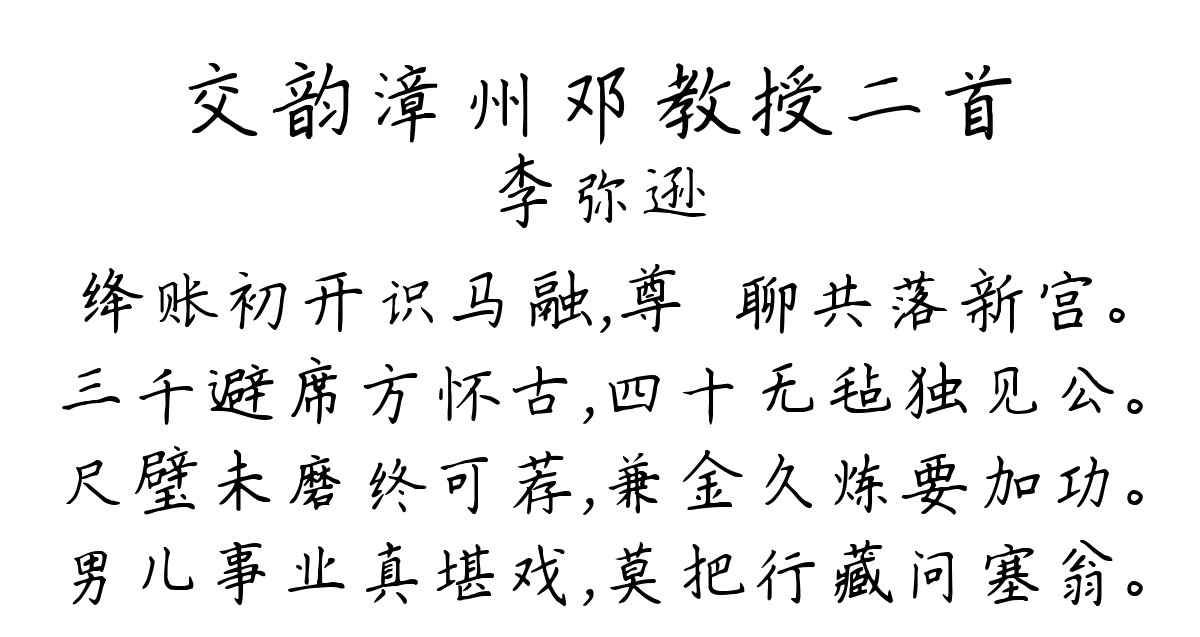 交韵漳州邓教授二首
李弥逊
绛账初开识马融,尊 聊共落新宫。
三千避席方怀古,四十无毡独见公。
尺璧未磨终可荐,兼金久炼要加功。
男儿事业真堪戏,莫把行藏问塞翁。